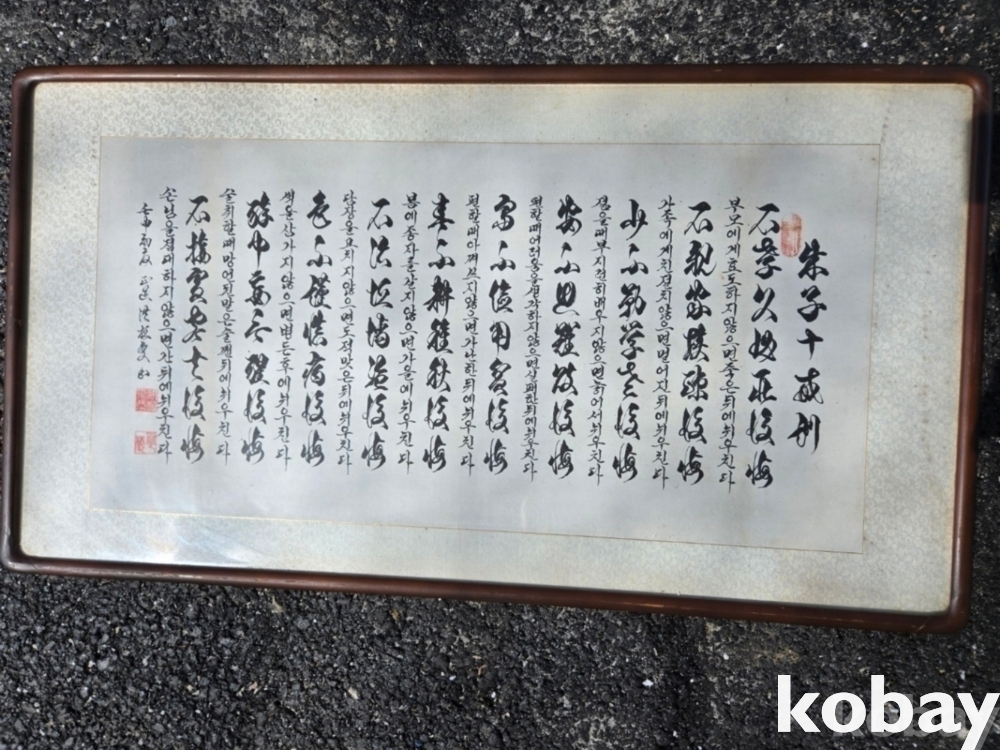 朱子十戒訓
不孝父母死後悔
부모에게 효도하지 않으면 죽은 뒤에 뉘우친다
不親家族疎後悔
가족에게 친절치 않으면 멀어진 뒤에 뉘우친다
少不勤學老後悔
젊을 때 부지런히 배우지 않으면 늙어서 뉘우친다
安不思難敗後悔
편할 때 어려움을 생각하지 않으면 실패한 뒤에 뉘우친다
富不儉用貧後悔
편할 때 아껴 쓰지 않으면 가난한 뒤에 뉘우친다
春不耕種秋後悔
봄에 종자를 갈지 않으면 가을에 뉘우친다
不治垣墻盜後悔
담장을 고치지 않으면 도적 맞은 뒤에 뉘우친다
色不謹愼病後悔
색을 삼가지 않으면 병든 후에 뉘우친다
醉中妄言醒後悔
술 취할 때 망언된 말은 술 깬 뒤에 뉘우친다
不接賓客去後悔
손님을 접대하지 않으면 간 뒤에 뉘우친다
壬申初秋
kobay